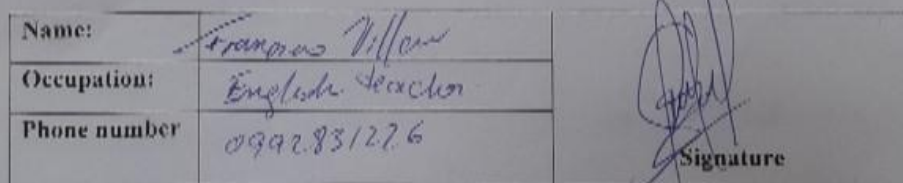 Name: Francisco Villow
Occupation: English teacher
Phone number 0992831226
Signature